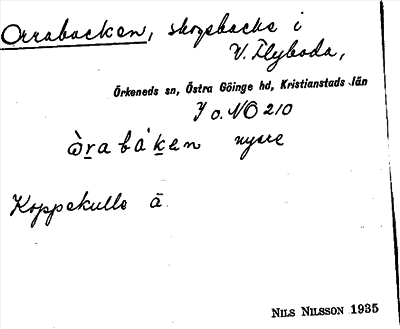 Orrabacken, skogsbacke i
V. Flyboda,
Örkeneds sn, Östra Göinge hd, Kristianstads län
J o. NO 210
òrabákan nyare
Koppekulle ä
NILS NILSSON 1935